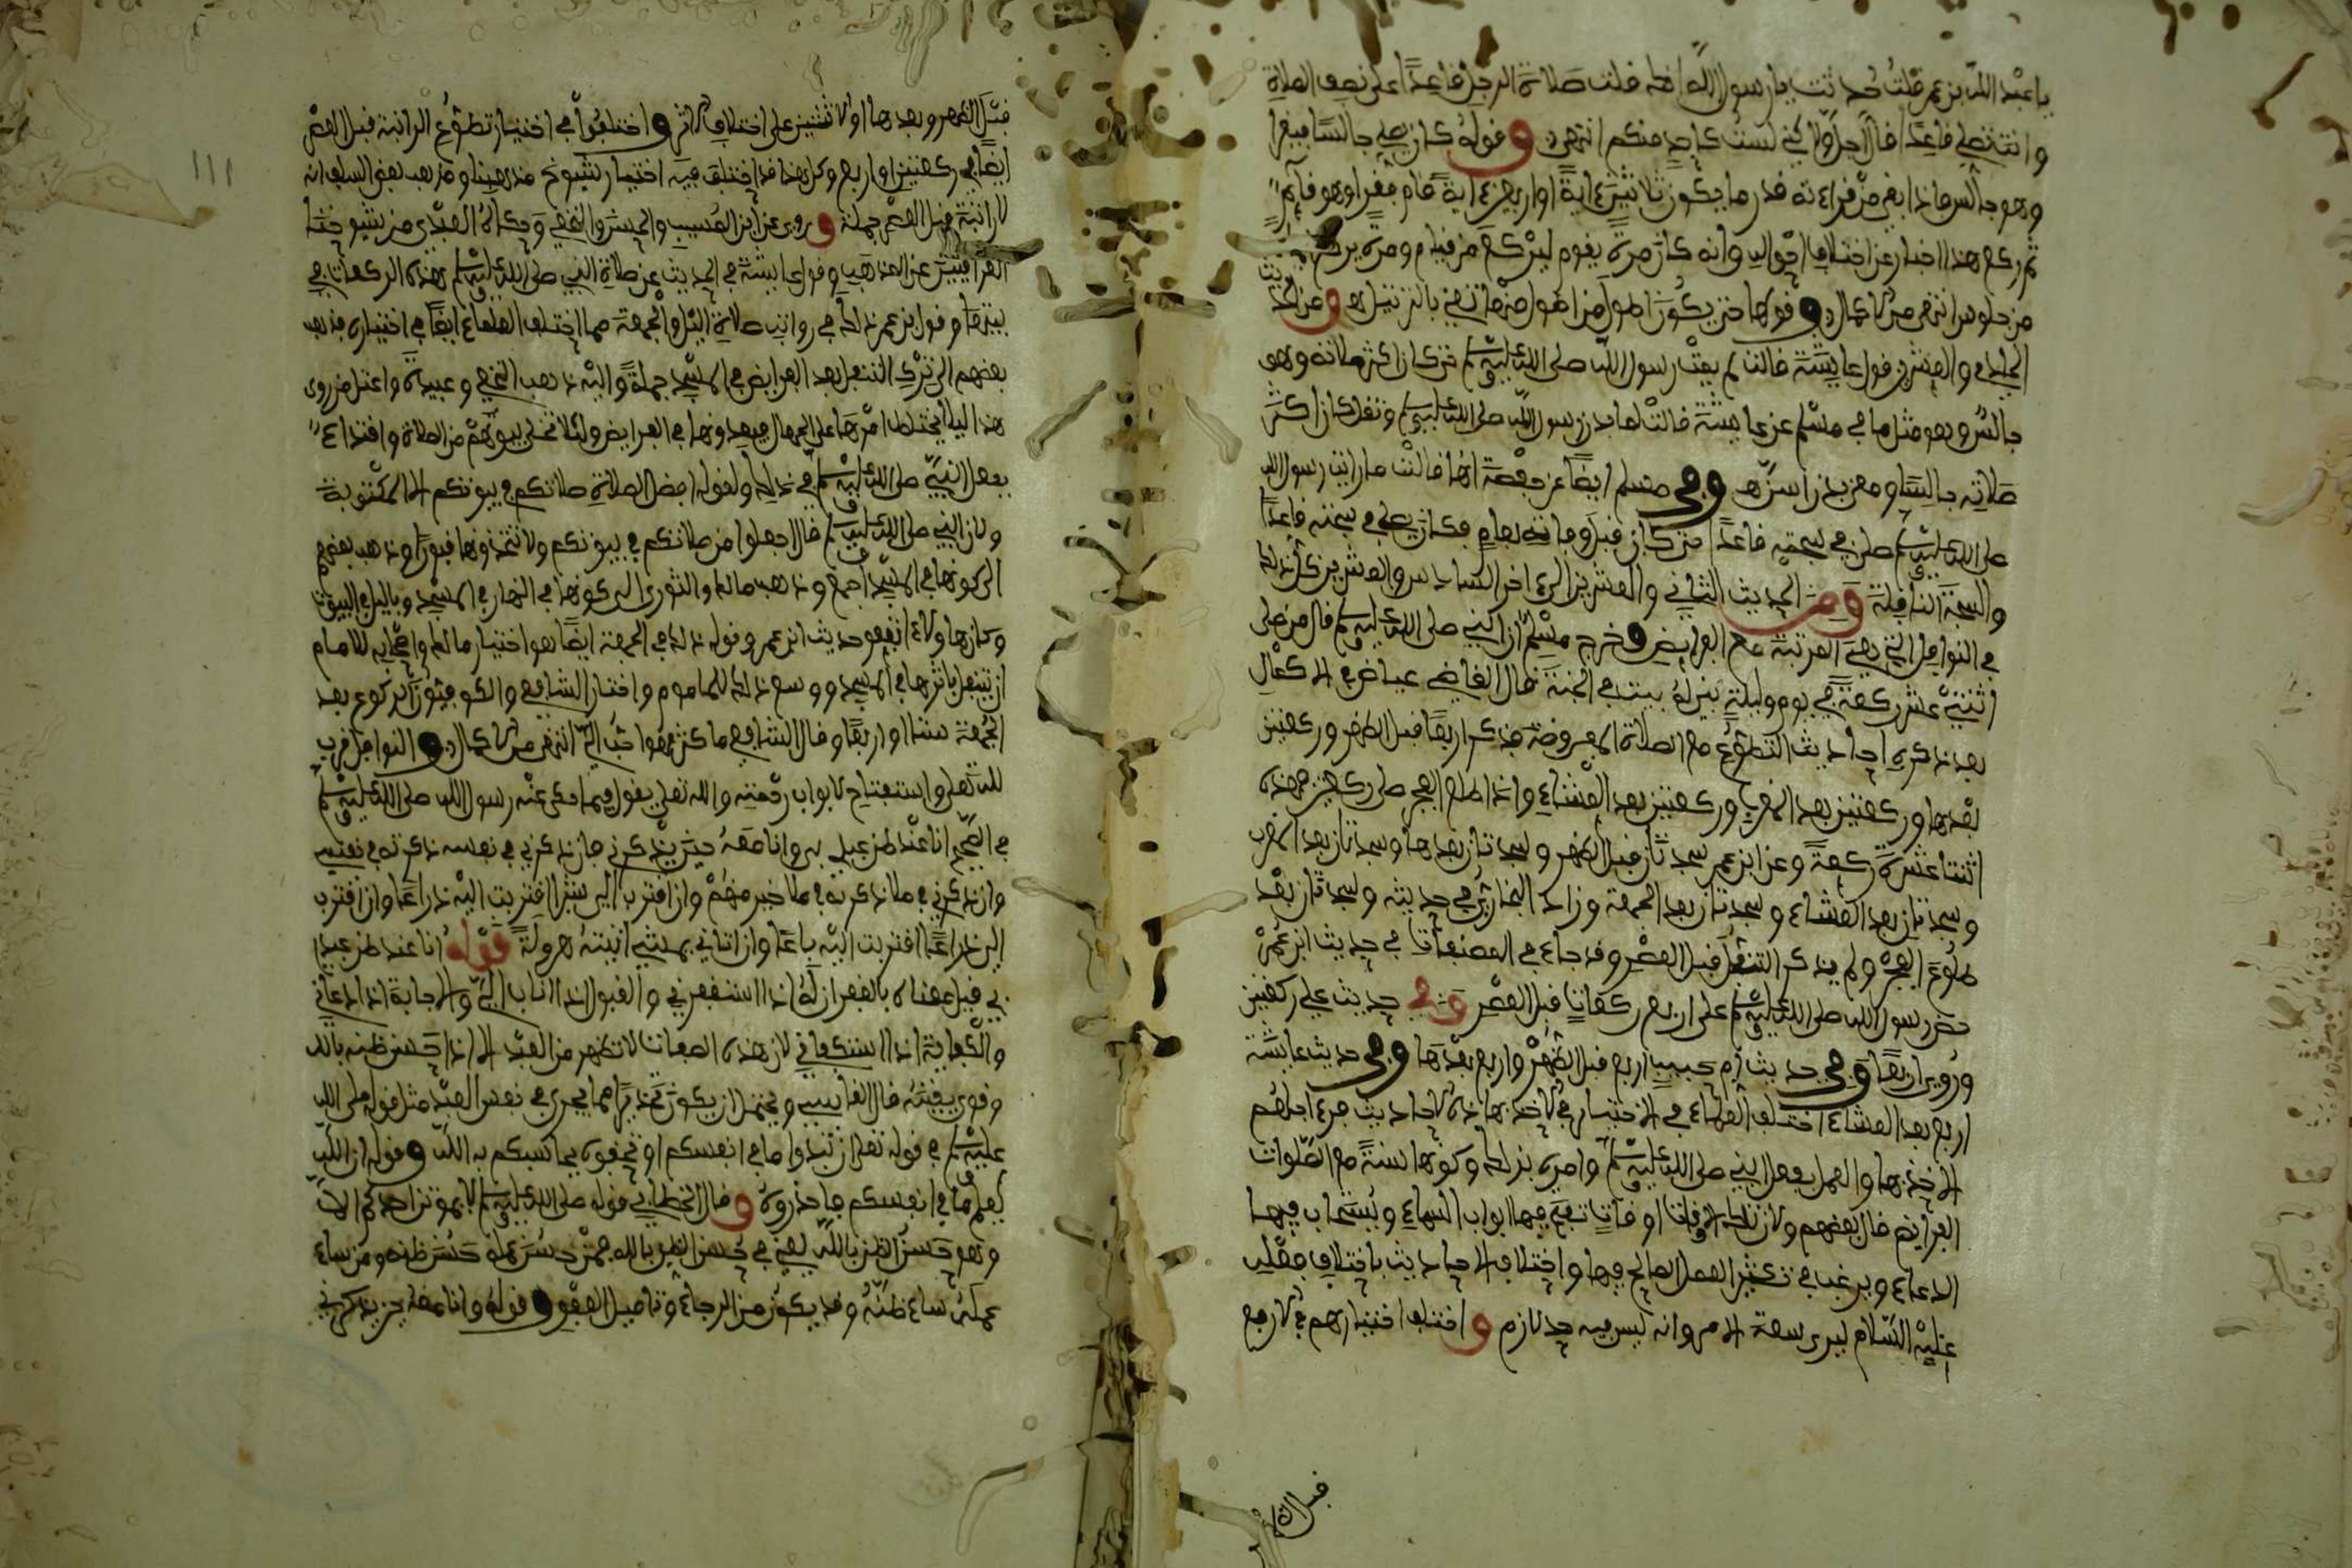 يا عبد الله بن عمر قلت حدثت يا رسول الله انك قلت صلاة الرجل قاعدا على نصف الصلاة
وانت تصلي قاعدا قال اجل ولاكني لست كاحد منكم انتهى وقوله كان يصلي جالسا فيقرا
وهو جالس فاذا بقي من قراءته قدر ما يكون ثلاثين ءاية او اربعين ءاية قام فقرا وهو قائم
ثم ركع هذا اخبار عن اختلاف احواله وانه كان مرة يقوم ليركع من قيام ومرة يركع
من جلوس انتهى من الاكمال وقولها حتى يكون اطول من اطول منها تعني بالترتيل هـ ومن الحديث
الحادي والعشرين قول عائشة قالت لم يمت رسول الله صلى الله عليه وسلم حتى كان اكثر صلاته وهو
جالس وهو مثل ما في مسلم عن عائشة قالت لما بدن رسول الله صلى الله عليه وسلم وثقل كان اكثر
صلاته جالسا ومعنى بدن اسن هـ وفي مسلم ايضا عن حفصة انها قالت ما رايت رسول الله
صلى الله عليه وسلم صلى في سبحته قاعدا حتى كان قبل وفاته بعام فكان يصلي في سبحته قاعدا
والسبحة النافلة ومن الحديث الثاني والعشرين الى ءاخر السادس والعشرين كل ذلك
في النوافل التي هي المرتبة مع الفرائض وخرج مسلم ان النبي صلى الله عليه وسلم قال من صلى
اثنتي عشر ركعة في يوم وليلة بني له بيت في الجنة قال القاضي عياض في الاكمال
بعد ذكره احاديث التطوع مع الصلاة المفروضة فذكر اربعا قبل الظهر وركعتين
بعدها وركعتين بعد المغرب وركعتين بعد العشاء واذا طلع الفجر صلى ركعتين فهذه
اثنتا عشرة ركعة وعن ابن عمر سجدتان قبل الظهر وسجدتان بعدها وسجدتان بعد المغرب
وسجدتان بعد العشاء وسجدتان بعد الجمعة وزاد البخاري في حديثه وسجدتان بعد
طلوع الفجر ولم يذكر التنفل قبل العصر وقد جاء في المصنفات في حديث ابن عمر
حض رسول الله صلى الله عليه وسلم على اربع ركعات قبل العصر وفي حديث علي ركعتين
وروي اربعا وفي حديث ام حبيبة اربع قبل الظهر واربع بعدها وفي حديث عائشة
اربع بعد العشاء اختلف العلماء في الاختيار في الاخذ بهاذه الاحاديث فرءا جلهم
الاخذ بها والعمل بفعل النبي صلى الله عليه وسلم وامره بذلك وكونها سنة مع الصلوات
الفرائض قال بعضهم ولان تلك الاوقات اوقات تفتح فيها ابواب السماء ويستجاب فيها
الدعاء ويرغب في تكثير العمل الصالح فيها واختلاف الاحاديث باختلاف فعله
عليه السلام ليرى سعة الامر وانه ليس فيه حد لازم واختلف اختيارهم في الاربع
قبل الظهر
١١١
قبل الظهر وبعدها او الاثنتين على اختلاف الاثر واختلفوا في اختيار تطوع الراتبة قبل العصر
ايضا في ركعتين او اربع وكل هذا قد اختلف فيه اختيار شيوخ مذهبنا ومذهب بعض السلف انه
لا راتبة قبل العصر جملة وروي عن ابن المسيب والحسن والنخعي وحكاه العبدي من شيوخنا
العراقيين عن المذهب وقول عائشة في الحديث عن صلاة النبي صلى الله عليه وسلم هذه الركعات في
بيتها وقول ابن عمر ذلك في رواتب صلاة الليل والجمعة مما اختلف العلماء ايضا في اختياره فذهب
بعضهم الى ترك التنفل بعد الفرايض في المسجد جملة واليه ذهب النخعي وعبيدة واعتل من روى
هذا ليلا يختلط امرها على الجهال فيعدونها في الفرايض ولئلا تخلى بيوتهم من الصلاة واقتداء
بفعل النبي صلى الله عليه وسلم في ذلك ولقوله افضل الصلاة صلاتكم في بيوتكم الا المكتوبة
ولان النبي صلى الله عليه وسلم قال اجعلوا من صلاتكم في بيوتكم ولا تتخذوها قبورا وذهب بعضهم
الى كونها في المسجد اجمع وذهب مالك والثوري الى كونها في النهار في المسجد وبالليل في البيوت
وكان هاولاء اتبعوا حديث ابن عمر وقوله ذلك في الجمعة ايضا هو اختيار مالك واصحابه للامام
ان يتنفل باثرها في المسجد ووسع ذلك للماموم واختار الشافعي والكوفيون الركوع بعد
الجمعة ستا او اربعا وقال الشافعي ما كثر فهو احب الي انتهى من الاكمال والنوافل قرب
لله تعلى واستفتاح لابواب رحمته والله تعلى يقول فيما حكى عنه رسول الله صلى الله عليه وسلم
في الصحيح انا عند ظن عبدي بي وانا معه حين يذكرني فان ذكرني في نفسه ذكرته في نفسي
وان ذكرني في ملا ذكرته في ملا خير منهم وان اقترب الي شبرا اقتربت اليه ذراعا وان اقترب
الي ذراعا اقتربت اليه باعا وان اتاني يمشي اتيته هرولة قوله انا عند ظن عبدي
بي قيل معناه بالغفران له اذا استغفرني والقبول اذا اناب الي والاجابة اذا دعاني
والكفاية اذا استكفاني لان هذه الصفات لا تظهر من العبد الا اذا احسن ظنه بالله
وقوي يقينه قال القابسي ويحتمل ان يكون تحذيرا مما يجري في نفس العبد مثل قوله صلى الله
عليه وسلم في قوله تعلى ان تبدوا ما في انفسكم او تخفوه يحاسبكم به الله وقوله ان الله
يعلم ما في انفسكم فاحذروه وقال الخطابي قوله صلى الله عليه وسلم لا يموتن احدكم الا
وهو حسن الظن بالله يعني في حسن الظن بالله فمن حسن عمله حسن ظنه ومن ساء
عمله ساء ظنه وقد يكون من الرجاء وتاميل العفو وقوله وانا معه حين يذكرني